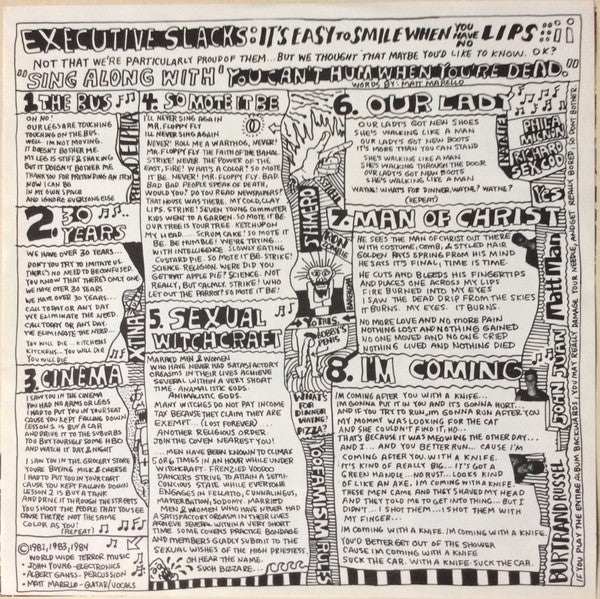 EXECUTIVE SLACKS: IT'S EASY TO SMILE WHEN YOU HAVE NO LIPS::
NOT THAT WE'RE PARTICULARLY PROUD OF THEM... BUT WE THOUGHT THAT MAYBE YOU'D LIKE TO KNOW. OK?
"SING ALONG WITH 'YOU CAN'T HUM WHEN YOU'RE DEAD."
WORDS BY: MATT MARELLO
1. THE BUS
OH NO!
OUR LEGS ARE TOUCHING
TOUCHING ON THE BUS.
WELL I'M NOT MOVING.
IT DOESN'T BOTHER ME
MY LEG IS STIFF & SHAKING
BUT IT DOESN'T BOTHER ME
THANK YOU FOR PRETENDING AN ITCH
NOW I CAN BE
IN MY OWN SPACE
AND IGNORE EVERYONE ELSE
2. 30 YEARS
WE HAVE OVER 30 YEARS...
DON'T YOU TRY TO IMITATE US
THERE'S NO NEED TO BE CONFUSED
YOU KNOW THAT THERE'S ONLY ONE
WE HAVE OVER 30 YEARS
WE HAVE OVER 30 YEARS...
CALL TODAY OR ANY DAY.
WE ELIMINATE THE NEED.
CALL TODAY OR ANY DAY.
WE ELIMINATE THE NEED
YOU WILL DIE... KITCHENS
KITCHENS... YOU WILL DIE
YOU WILL DIE
3. CINEMA
I SAW YOU IN THE CINEMA
YOU HAD NO ARMS OR LEGS
I HAD TO PUT YOU IN YOUR SEAT
CAUSE YOU KEPT FALLING DOWN
LESSON 1 IS BUY A CAR
AND DRIVE IT TO THE SUBURBS
YOU BUY YOURSELF SOME HBO
AND WATCH IT DAY & NIGHT
I SAW YOU IN THE GROCERY STORE
YOU'RE BUYING MILK & CHEESE
I HAD TO PUT YOU IN YOUR CART
CAUSE YOU KEPT FALLING DOWN
LESSON 2 IS BUY A TANK
AND DRIVE IT THROUGH THE STREETS
YOU SHOOT THE PEOPLE THAT YOU SEE
CAUSE THEY'RE NOT THE SAME
COLOR AS YOU!
(REPEAT)
©1982, 1983, 1984
WORLD WIDE TERROR MUSIC
• JOHN YOUNG - ELECTRONICS
• ALBERT GANSS - PERCUSSION
• MATT MARELLO - GUITAR/VOCALS
4. SO MOTE IT BE
I'LL NEVER SING AGAIN
MR. FLOPPY FLY
I'LL NEVER SING AGAIN
NEVER! ROLL ME A WARTHOG, NEVER!
MR. FLOPPY FLY. THE FAITH OF THE BANE.
STRIKE! NEVER. THE POWER OF THE
EAST, FIRE! WHAT'S A COLOR? SO MOTE
IT BE. NEVER! MR. FLOPPY FLY. BAD
BAD BAD PEOPLE SPEAK OF DEATH,
WOULD YOU? DO YOU READ NEWSPAPERS?
THAT HOUSE WAS THERE. MY COLD, CLAY
LIPS. STRIKE! SEVEN YOUNG COMMUTER
KIDS WENT TO A GARDEN. SO MOTE IT BE.
OUR TREE IS YOUR TREE. KETCHUP ON
MY LIMBO... SCROM CAKE! SO MOTE IT
BE. BE HUMBLE! WE'RE TRYING...
WITH INTELLIGENCE. SLOWLY EATING
CUSTARD PIE. SO MOTE IT BE. STRIKE!
SCIENCE. RELIGION. WERE DID YOU
GET THAT APPLE PIE? SCIENCE. NOT
REALLY, BUT CALMLY. STRIKE! WHO
LET OUT THE PARROT! SO MOTE IT BE!
5. SEXUAL WITCHCRAFT
MARRIED MEN & WOMEN
WHO HAVE NEVER HAD SATISFACTORY
ORGASMS IN THEIR LIVES ACHIEVE
SEVERAL WITHIN A VERY SHORT
TIME. ANIMALISTIC GODS.
ANIMALISTIC GODS.
MANY WITCHES DO NOT PAY INCOME
TAX BECAUSE THEY CLAIM THEY ARE
EXEMPT... (LOST FOREVER)....
ANOTHER RELIGIOUS ORDER.
JOIN THE COVEN NEAREST YOU!
...MEN HAVE BEEN KNOWN TO CLIMAX
5 OR 6 TIMES IN AN HOUR WHILE UNDER
WITCHCRAFT. FRENZIED VOODOO
DANCERS STRIVE TO ATTAIN A SEMI-
CONSCIOUS STATE, WHILE EVERYONE
ENGAGES IN FELLATIO, CUNNILINGUS,
MASTURBATION, SODOMY. MARRIED
MEN & WOMEN WHO HAVE NEVER HAD
A SATISFACTORY ORGASM IN THEIR LIVES
ACHIEVE SEVERAL WITHIN A VERY SHORT
TIME. SOME COVENS PRACTICE BONDAGE
AND MEMBERS GLADLY SUBMIT TO THE
SEXUAL WISHES OF THE HIGH PRIESTESS.
OH HEAR THE NAME.
SUCH BIZZARE...
6. OUR LADY
OUR LADY'S GOT NEW SHOES
SHE'S WALKING LIKE A MAN
OUR LADY'S GOT NEW BOOTS
IT'S MORE THAN YOU CAN STAND
SHE'S WALKING LIKE A MAN
SHE'S WALKING THROUGH THE DOOR
OUR LADY'S GOT NEW BOOTS
SHE'S WALKING LIKE A MAN
WAYNE: WHAT'S FOR DINNER, WAYNE? WAYNE?
(REPEAT)
7. MAN OF CHRIST
HE SEES THE MAN OF CHRIST OUT THERE
WITH COSTUME, COMB, & STYLED HAIR
GOLDEN RAYS SPRING FROM HIS MIND
HE SAYS IT'S FINAL TIME IS TIME.
HE CUTS AND BLEEDS HIS FINGERTIPS
AND PLACES ONE ACROSS MY LIPS
FIRE BURNED INTO MY EYES
I SAW THE DEAD DRIP FROM THE SKIES
IT BURNS. MY EYES. IT BURNS.
NO MORE LOVE AND NO MORE PAIN
NOTHING LOST AND NOTHING GAINED
NO ONE MOVED AND NO ONE CRIED
NOTHING LIVED AND NOTHING DIED
8. I'M COMING
I'M COMING AFTER YOU WITH A KNIFE...
I'M GONNA PUT IT IN YOU AND IT'S GONNA HURT...
AND IF YOU TRY TO RUN, I'M GONNA RUN AFTER YOU
MY MOMMY WAS LOOKING FOR THE CAT
AND SHE COULDN'T FIND IT, HO...
THAT'S BECAUSE IT WAS MEOWING THE OTHER DAY...
AND I... AND YOU BETTER RUN... CAUSE I'M
COMING AFTER YOU WITH A KNIFE.
IT'S KIND OF REALLY BIG... IT'S GOT A
GREEN HANDLE... NO RUST... LOOKS KIND
OF LIKE AN AXE. I'M COMING WITH A KNIFE.
THESE MEN CAME AND THEY SHAVED MY HEAD
AND THEY TOLD ME TO GET INTO THING... BUT I
DIDN'T... I SHOT THEM... I SHOT THEM WITH
MY FINGER...
I'M COMING WITH A KNIFE. I'M COMING WITH A KNIFE.
YOU'D BETTER GET OUT OF THE SHOWER
CAUSE I'M COMING WITH A KNIFE
SUCK THE CAR. WITH A KNIFE. SUCK THE CAR.
PHILA. MICKMAN
RICHARD SEXGOD
YES
XTINA
WHAT'S FOR DINNER WAYNE? PIZZA?
JOHN JUAN Matt Man
BURTRAND RUSSEL
IF YOU PLAY THE ENTIRE ALBUM BACKWARDS YOU MAY REALLY DAMAGE YOUR NEEDLE AND/OR GET REALLY BORED, SO DON'T BOTHER